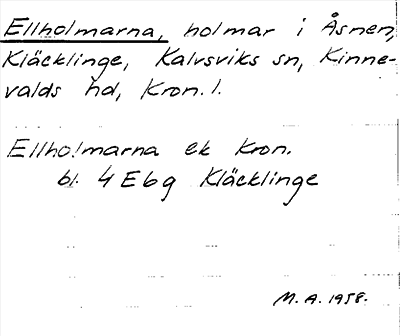 Ellholmarna, holmar i Åsnen,
Kläcklinge, Kalvsviks sn, Kinne-
valds hd, Kron. l.
Ellholmarna ek Kron.
bl. 4 E 6 g Kläcklinge
M. A. 1958.